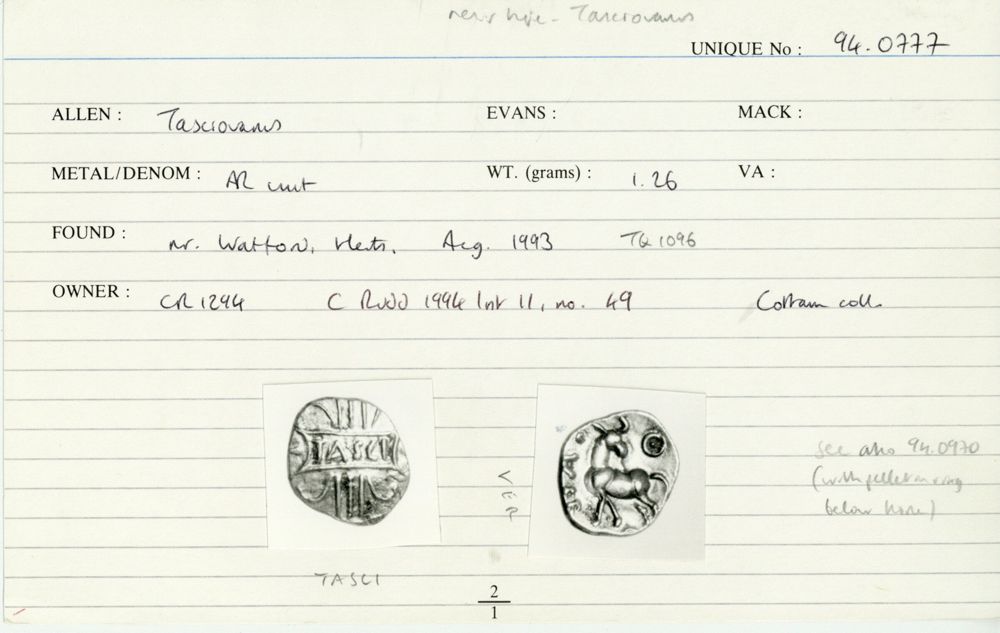 new type - Tasciovanus
UNIQUE No : 94.0777
ALLEN : Tasciovanus EVANS : MACK :
METAL/DENOM : AR unit WT. (grams) : 1.26 VA :
FOUND : nr. Watford, Herts, Aug. 1993 TQ1096
OWNER : CR 1294 C Rudd 1994 list 11, no. 49 Cottam coll.
TASCI
see also 94.0970
(with pellet in ring
below horse)
V
E
R
TASCI
2
1